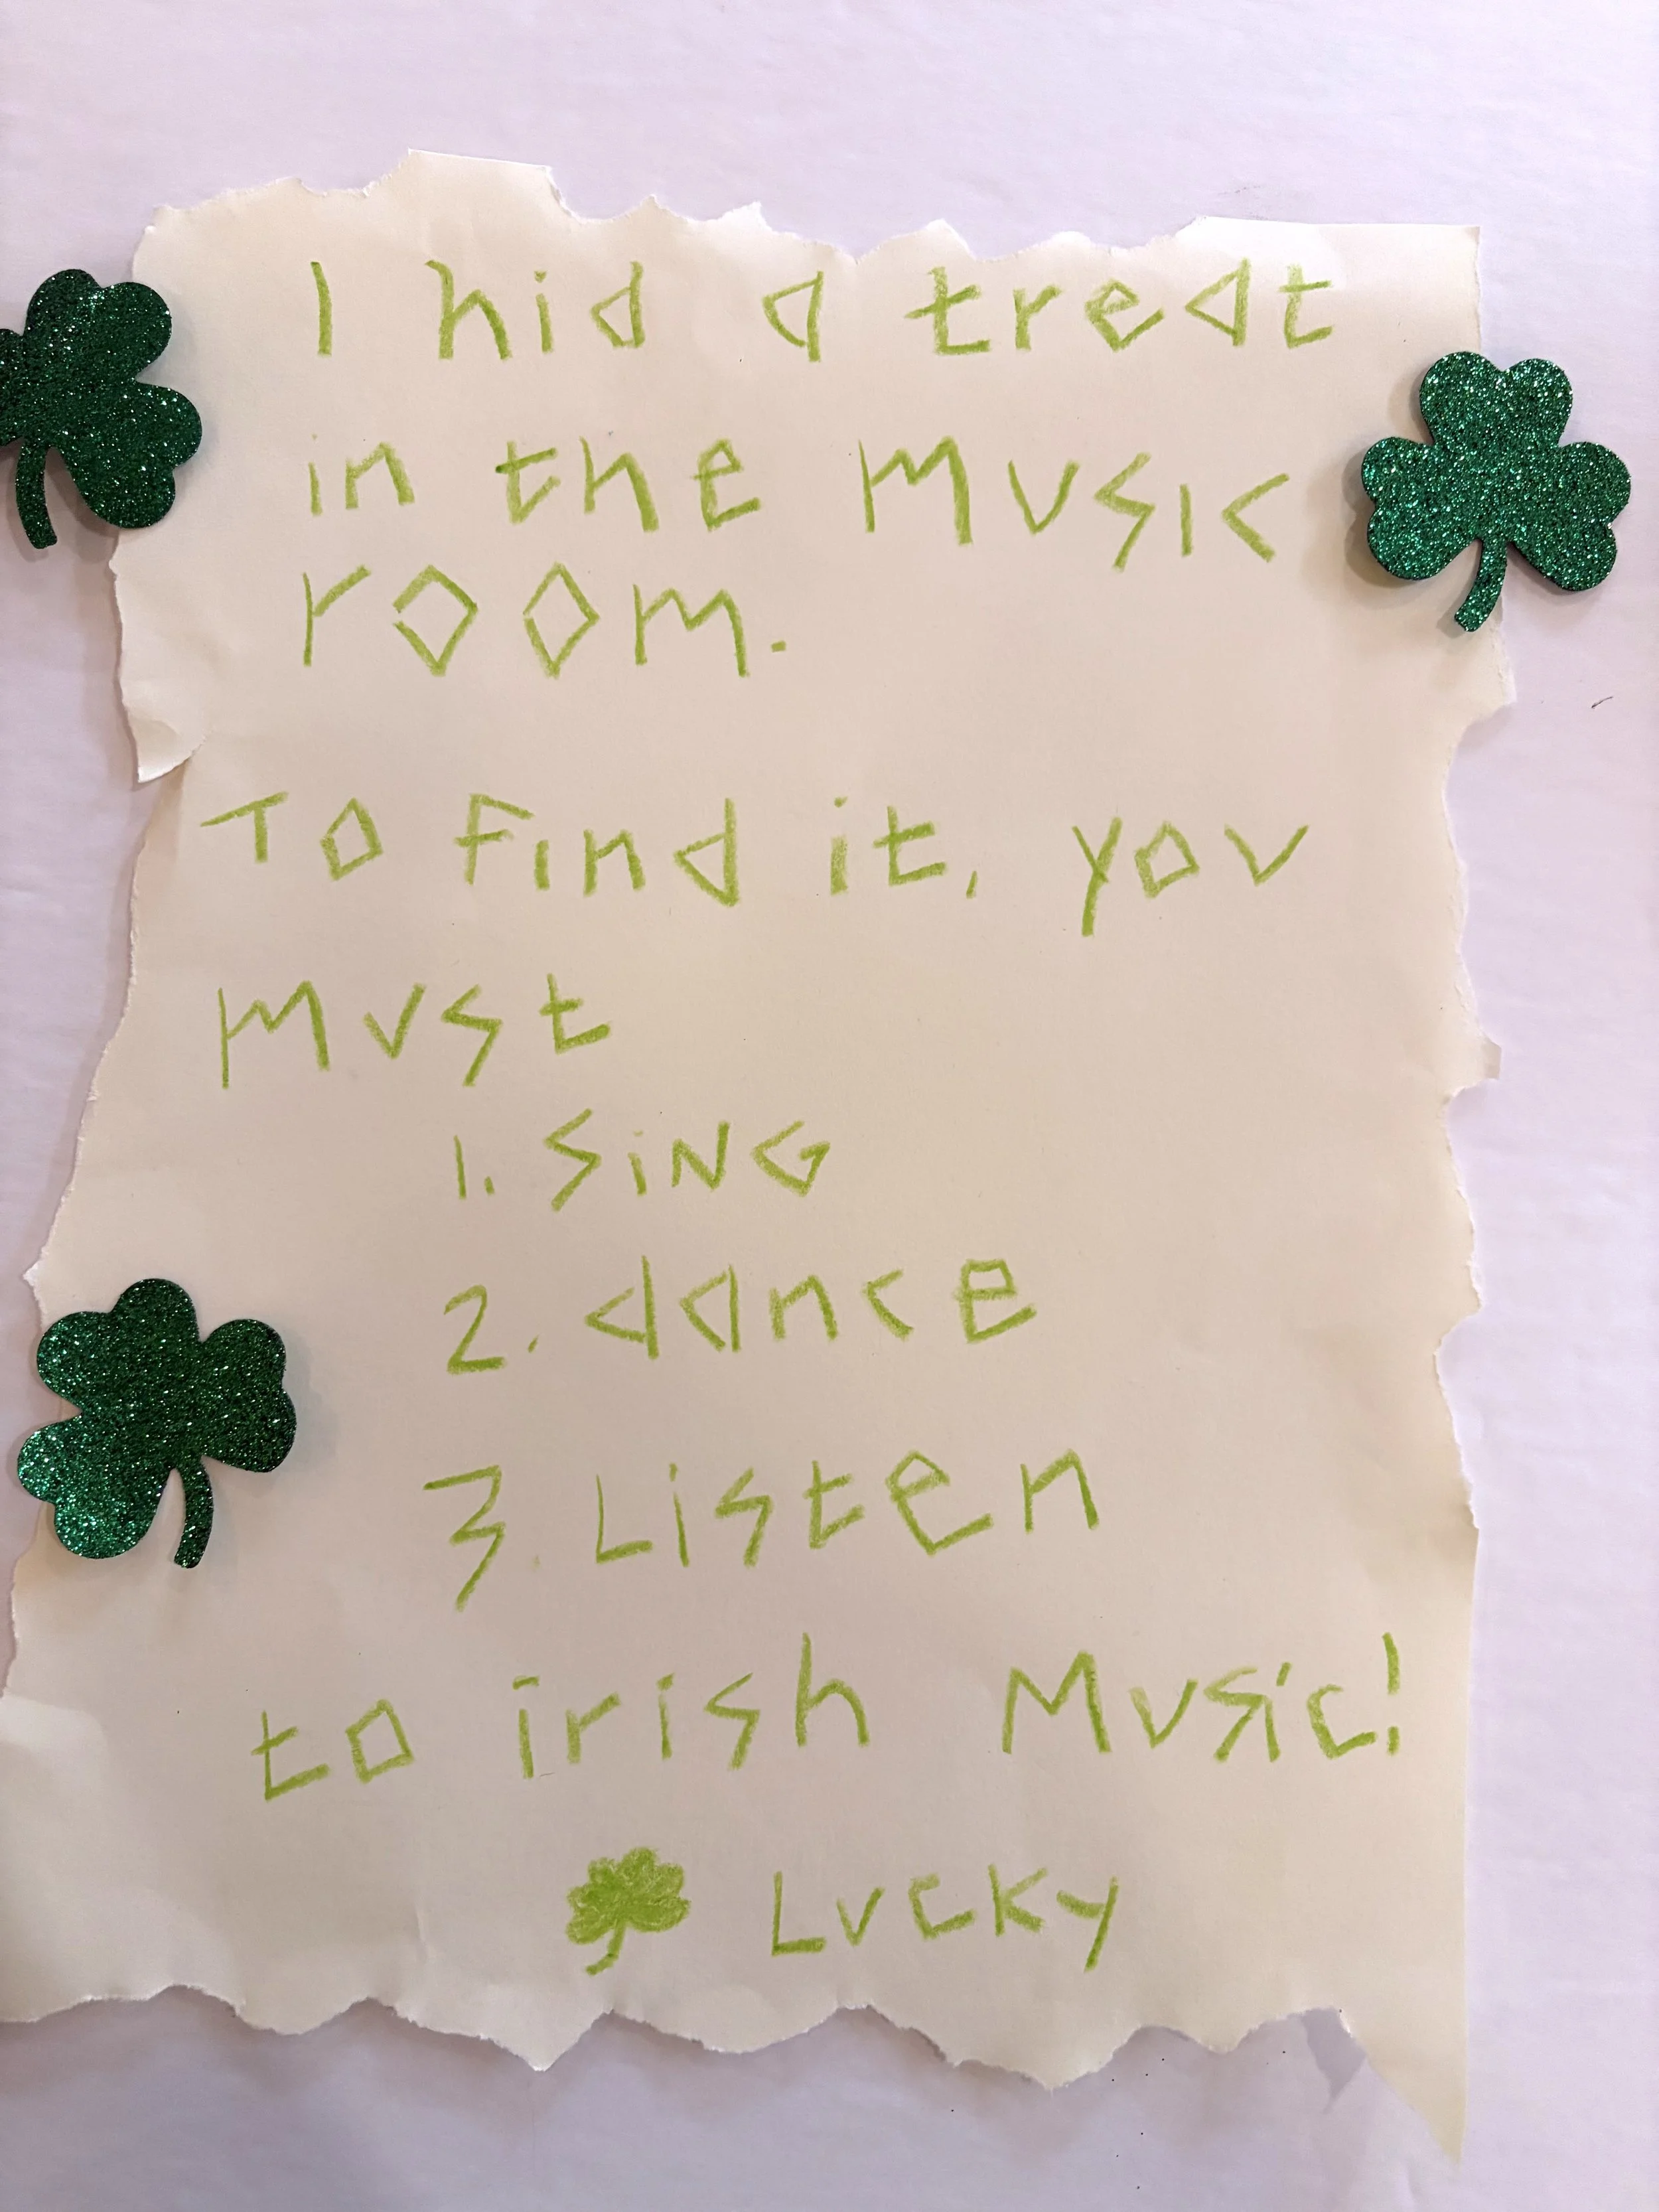 I hid a treat
in the Music
room.
To find it, you
Must
1. SiNG
2. dance
3. Listen
to irish Music!
Lucky